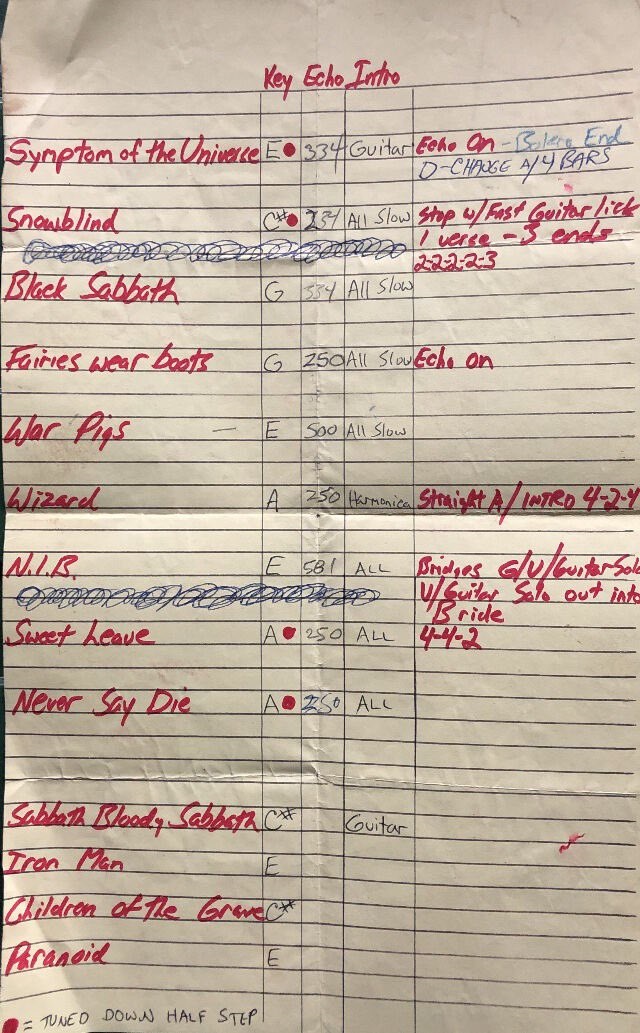 Key Echo Intro
Symptom of the Universe E ● 334 Guitar Echo On - Bolero End
D-CHANGE A/4 BARS
Snowblind C# ● 234 All Slow Stop w/ Fast Guitar lick
1 verse - 3 ends
2-2-2-2-3
Black Sabbath G 334 All Slow
Fairies wear boots G 250 All Slow Echo on
War Pigs — E 500 All Slow
Wizard A 250 Harmonica Straight A/INTRO 4-2-4
N.I.B. E 581 ALL Bridges G/V/Guitar Solo
V/Guitar Solo out into
Bride
Sweet Leave A ● 250 ALL 4-4-2
Never Say Die A ● 250 ALL
Sabbath Bloody Sabbath C# Guitar
Iron Man E
Children of the Grave C#
Paranoid E
● = TUNED DOWN HALF STEP